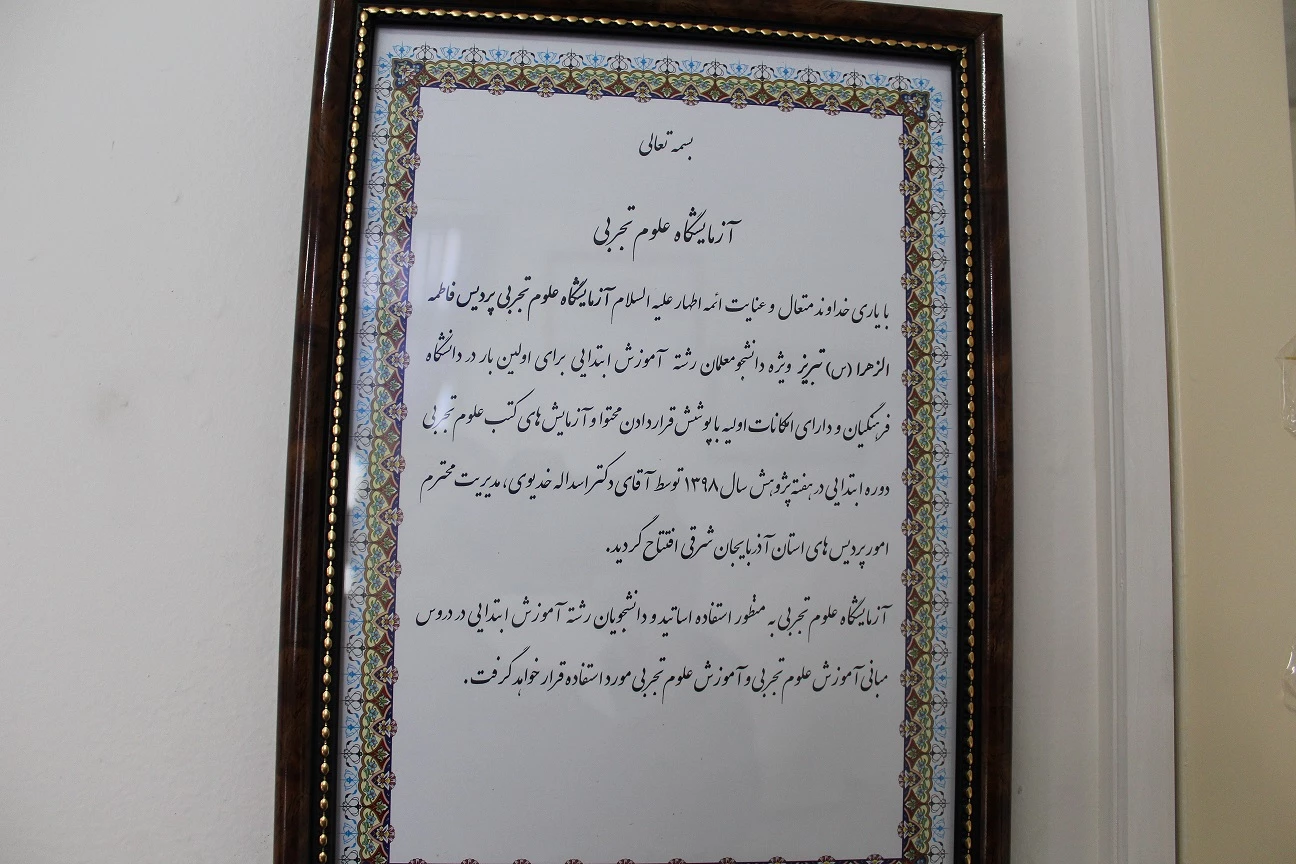 بسمه تعالی
آزمایشگاه علوم تجربی
با یاری خداوند متعال و عنایت ائمه اطهار علیه السلام آزمایشگاه علوم تجربی پردیس فاطمه
الزهرا (س) تبریز ویژه دانشجومعلمان رشته آموزش ابتدایی برای اولین بار در دانشگاه
فرهنگیان و دارای امکانات اولیه با پوشش قرار دادن محتوا و آزمایش های کتب علوم تجربی
دوره ابتدایی در هفته پژوهش سال ۱۳۹۸ توسط آقای دکتر اسداله خدیوی، مدیریت محترم
امور پردیس های استان آذربایجان شرقی افتتاح گردید.
آزمایشگاه علوم تجربی به منظور استفاده اساتید و دانشجویان رشته آموزش ابتدایی در دروس
مبانی آموزش علوم تجربی و آموزش علوم تجربی مورد استفاده قرار خواهد گرفت.